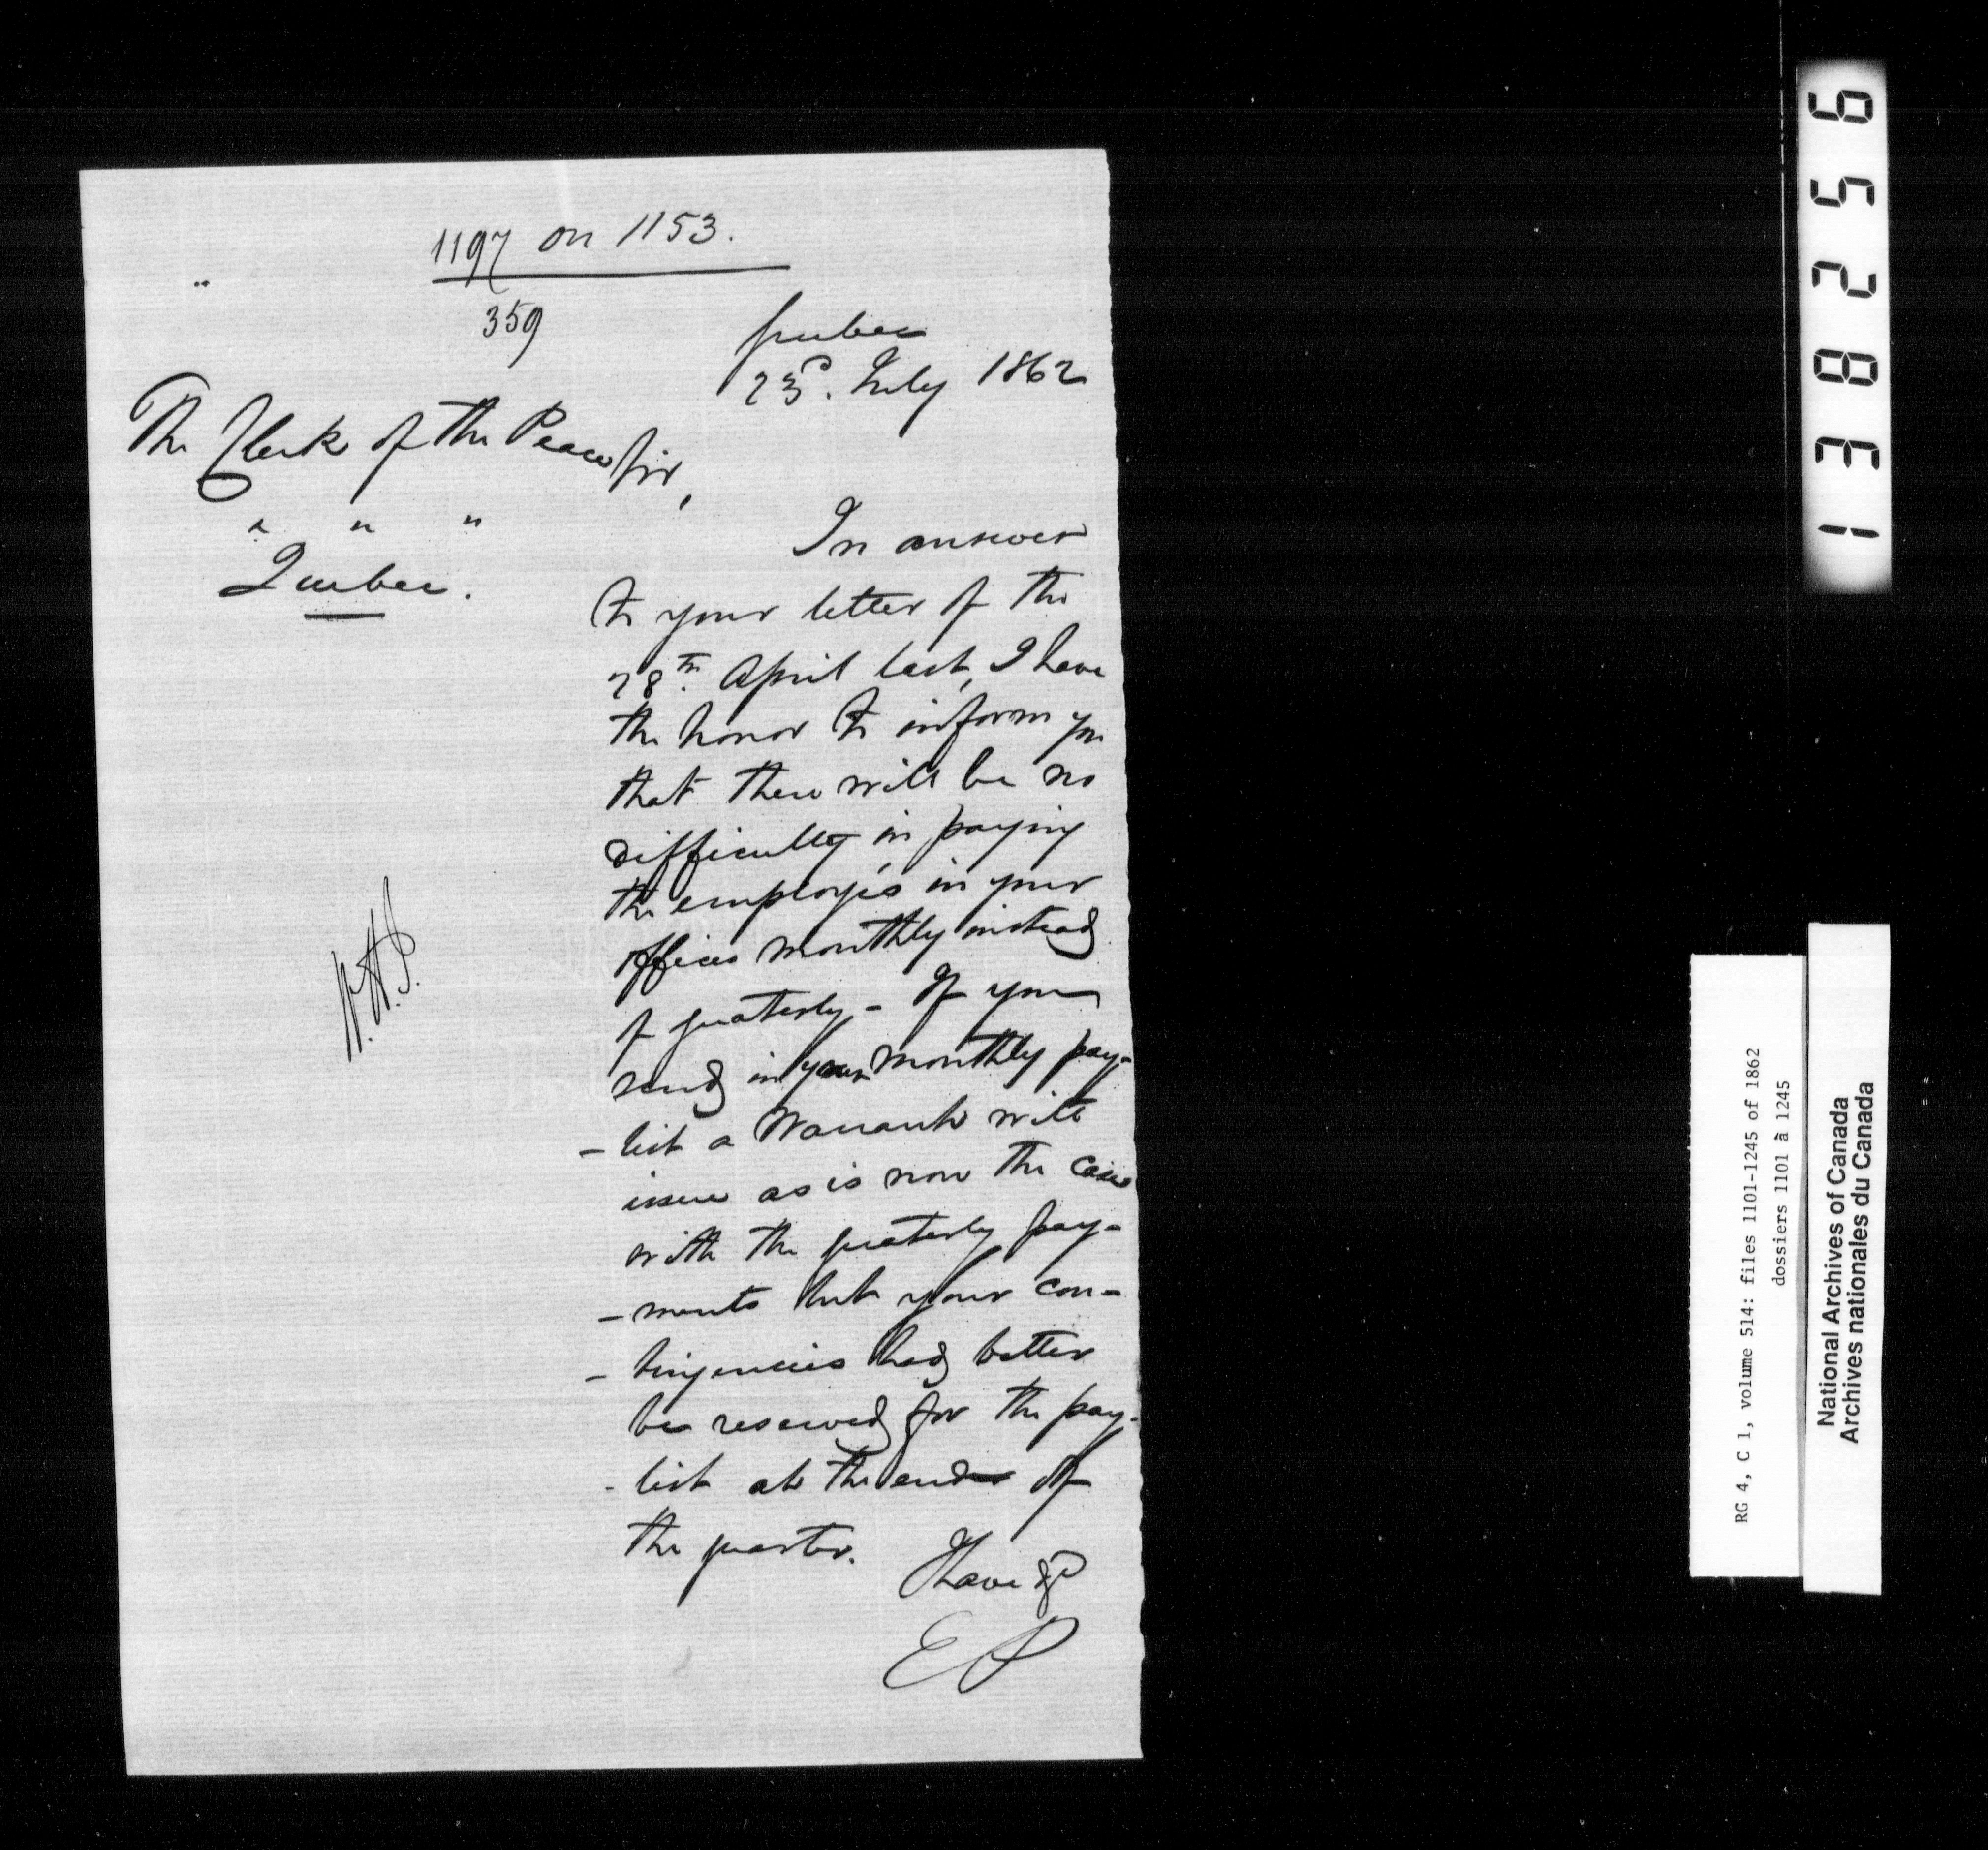 1197 on 1153.
359
Quebec
23d. July 1862
The Clerk of the Peace
" " "
Quebec.
Sir,
In answer
to your letter of the
28th. April last, I have
the honor to inform you
that there will be no
difficulty in paying
the employés in your
offices monthly instead
of quaterly - If you
send in your monthly pay-
- list a Warrant will
issue as is now the case
with the quaterly pay-
- ments but your con-
- tingencies had better
be reserved for the pay-
- list at the end of
the quarter.
I have &c
EP
138256
RG 4, C 1, volume 514: files 1101-1245 of 1862
dossiers 1101 à 1245
National Archives of Canada
Archives nationales du Canada